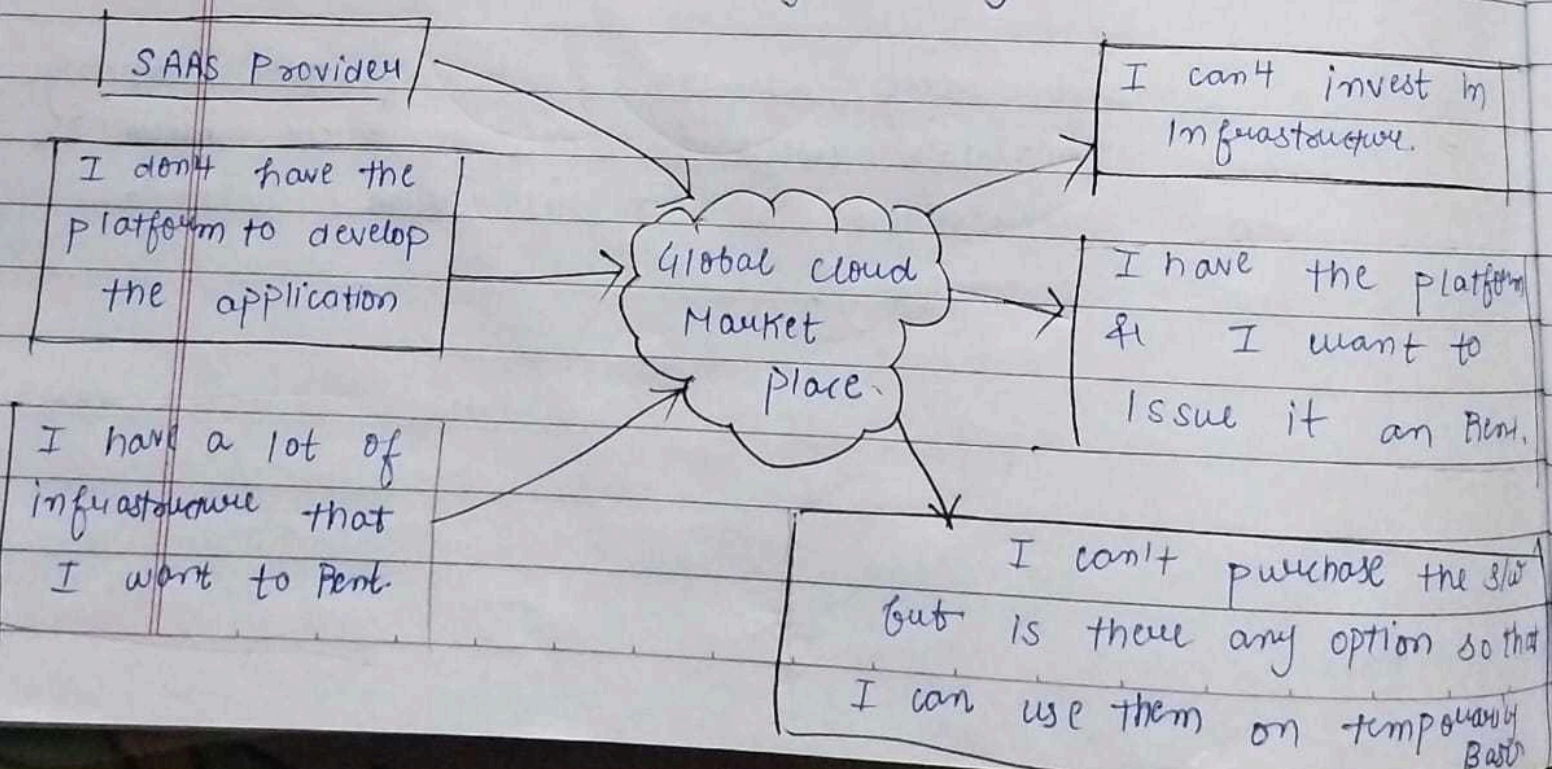 SAAS Provider
I don't have the
platform to develop
the application
I have a lot of
infrastructure that
I want to Rent.
Global cloud
Market
place.
I can't invest in
Infrastructure.
I have the platform
& I want to
Issue it an Rent.
I can't purchase the s/w
but is there any option so that
I can use them on temporarily
Basis